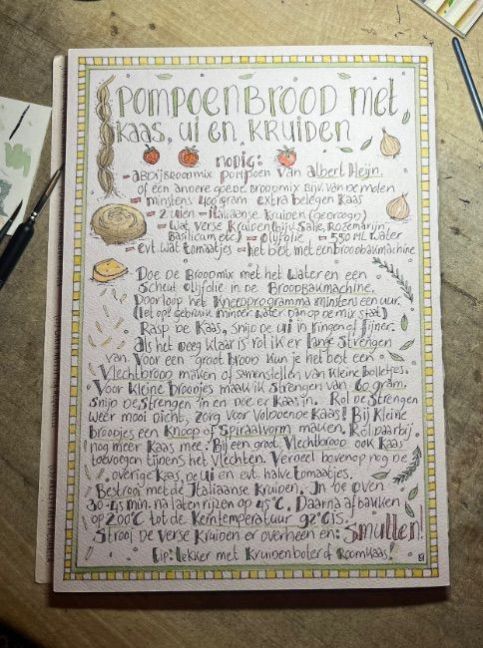 Pompoenbrood met
kaas, ui en kruiden
nodig:
- Abdijbroodmix pompoen van Albert Heijn.
of een andere goede broodmix bijv. van de molen
- minstens 400 gram extra belegen kaas
- 2 uien - Italiaanse kruiden (gedroogd)
- wat verse kruiden (bijv. salie, rozemarijn,
basilicum, etc) - olijfolie - 550 ml water
- evt. wat tomaatjes - het best met een broodbakmachine
Doe de broodmix met het water en een
scheut olijfolie in de broodbakmachine.
Doorloop het kneedprogramma minstens een uur.
(let op! gebruik minder water dan op de mix staat)
Rasp de kaas, snijd de ui in ringen of fijner.
Als het deeg klaar is rol ik er lange strengen
van. Voor een groot brood kun je het best een
vlechtbrood maken of samenstellen van kleine bolletjes.
Voor kleine broodjes maak ik strengen van 60 gram.
Snijd de strengen in en doe er kaas in. Rol de strengen
weer mooi dicht, zorg voor voldoende kaas! Bij kleine
broodjes een knoop of spiraalvorm maken. Rol daarbij
nog meer kaas mee. Bij een groot vlechtbrood ook kaas
toevoegen tijdens het vlechten. Verdeel bovenop nog de
overige kaas, de ui en evt. halve tomaatjes.
Bestrooi met de Italiaanse kruiden. In de oven
30-45 min. na laten rijzen op 45°C. Daarna afbakken
op 200°C tot de kerntemperatuur 92°C is.
Strooi de verse kruiden er overheen en: Smullen!
Tip: lekker met kruidenboter of roomkaas!